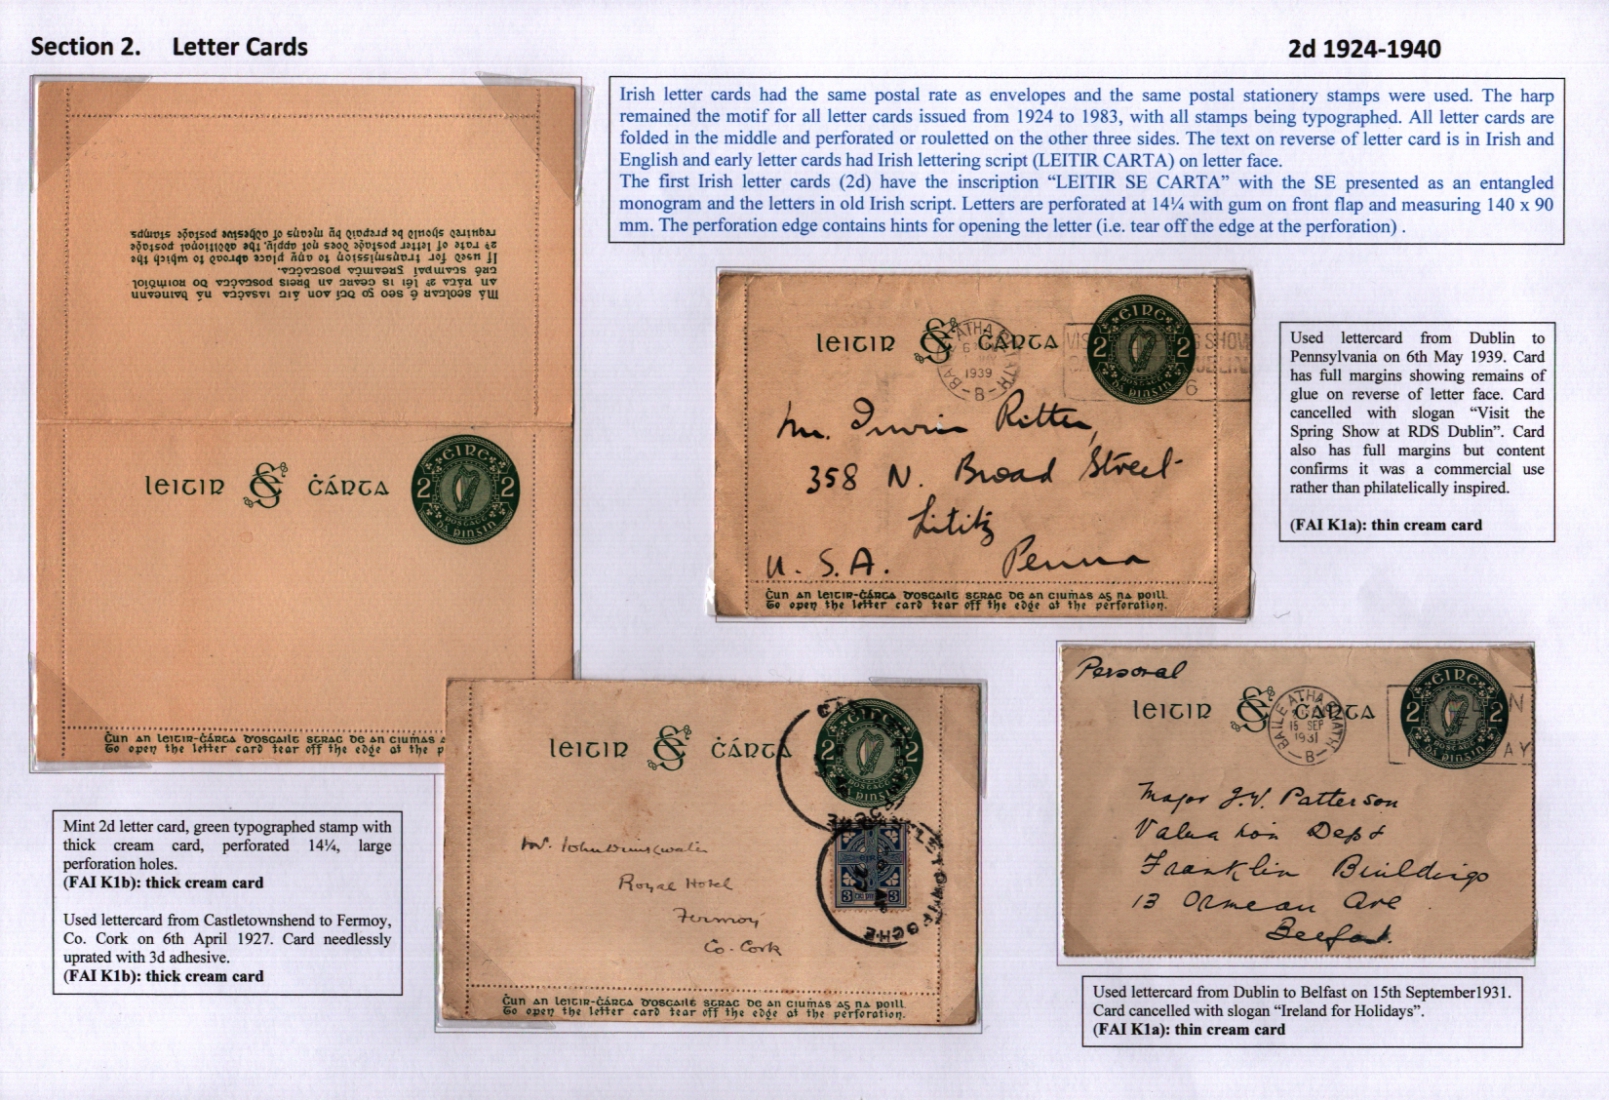 Section 2. Letter Cards
2d 1924-1940
Irish letter cards had the same postal rate as envelopes and the same postal stationery stamps were used. The harp
remained the motif for all letter cards issued from 1924 to 1983, with all stamps being typographed. All letter cards are
folded in the middle and perforated or rouletted on the other three sides. The text on reverse of letter card is in Irish and
English and early letter cards had Irish lettering script (LEITIR CARTA) on letter face.
The first Irish letter cards (2d) have the inscription “LEITIR SE CARTA” with the SE presented as an entangled
monogram and the letters in old Irish script. Letters are perforated at 14¼ with gum on front flap and measuring 140 x 90
mm. The perforation edge contains hints for opening the letter (i.e. tear off the edge at the perforation) .
Má seoltar é seo go dtí aon áit iasaċta ná baineann
an ráta 2ᵈ léi is ceart an breis postaċta do
tré stampaí greamṫa postaċta.
If used for transmission to any place abroad to which the
2ᵈ rate of letter postage does not apply, the additional postage
required should be prepaid by means of adhesive postage stamps
leitir SE ċárta
éire
2 2
postage
dá pinsin
Ċun an leitir-ċárta d'oscailt strac de an ciumas a
To open the letter card tear off the edge at the p
leitir SE ċárta
éire
2 2
postage
dá pinsin
BAILE ATHA CLIATH
6
1939
B
6
Mr. Irwin Ritter,
358 N. Broad Street
Lititz
U.S.A. Penna
Ċun an leitir-ċárta d'oscailt strac de an ciumas as na poill.
To open the letter card tear off the edge at the perforation.
Used lettercard from Dublin to
Pennsylvania on 6th May 1939. Card
has full margins showing remains of
glue on reverse of letter face. Card
cancelled with slogan “Visit the
Spring Show at RDS Dublin”. Card
also has full margins but content
confirms it was a commercial use
rather than philatelically inspired.
(FAI K1a): thin cream card
leitir SE ċárta
éire
2 2
dá pinsin
3 3
Royal Hotel
Fermoy
Co. Cork
Ċun an leitir-ċárta d'oscailt strac de an ciumas as na poill.
To open the letter card tear off the edge at the perforation.
Personal
leitir SE ċárta
éire
2 2
dá pinsin
BAILE ATHA CLIATH
15 SEP
1931
B
Major J.V. Patterson
Valuation Dept
Franklin Buildings
13 Ormeau Ave
Belfast.
Mint 2d letter card, green typographed stamp with
thick cream card, perforated 14¼, large
perforation holes.
(FAI K1b): thick cream card
Used lettercard from Castletownshend to Fermoy,
Co. Cork on 6th April 1927. Card needlessly
uprated with 3d adhesive.
(FAI K1b): thick cream card
Used lettercard from Dublin to Belfast on 15th September1931.
Card cancelled with slogan “Ireland for Holidays”.
(FAI K1a): thin cream card